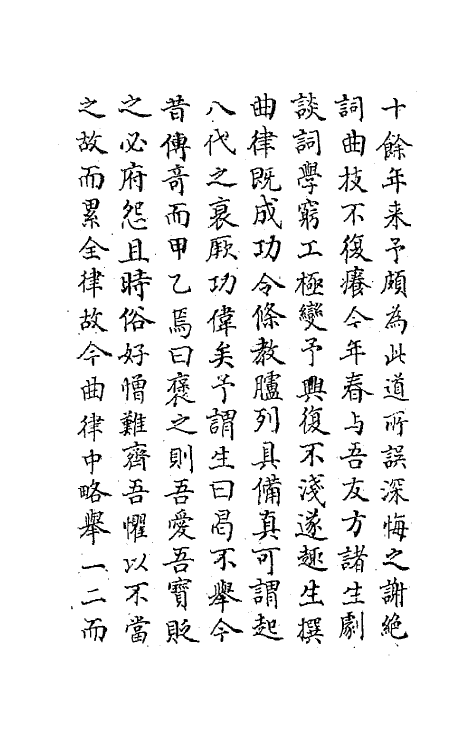 十餘年来予頗為此道所誤深悔之謝絶
詞曲技不復癢今年春与吾友方諸生劇
談詞學窮工極變予興復不淺遂趣生撰
曲律既成功令條教臚列具備真可謂起
八代之衰厥功偉矣予謂生曰曷不舉今
昔傳竒而甲乙焉曰褒之則吾愛吾寳貶
之必府怨且時俗好憎難齊吾懼以不當
之故而累全律故今曲律中略舉一二而